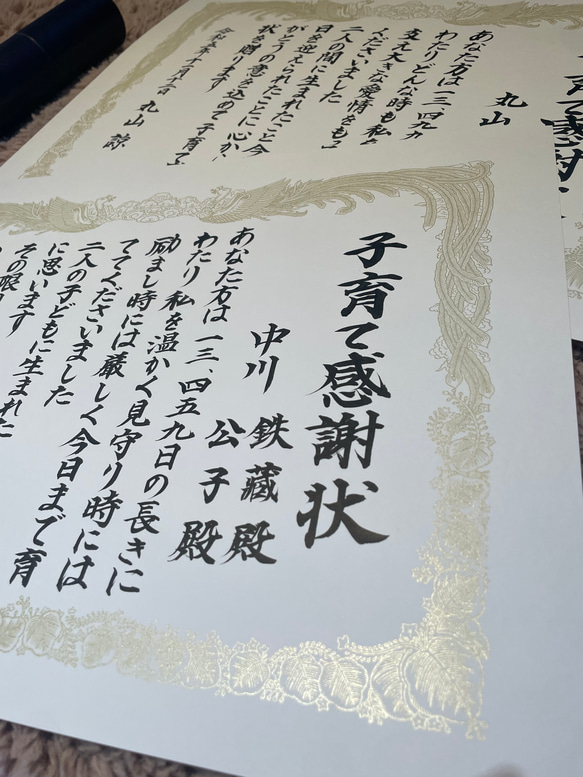 子育て感謝状
中川 鉄藏殿
公子殿
あなた方は 一三、四五九日の長きに
わたり 私を温かく見守り時には
励まし時には厳しく今日まで育
ててくださいました
二人の子どもに生まれた
に思います
その眼
丸山
あなた方は一三四九
わたりどんな時も私
支え大きな愛情をも
くださいました
二人の間に生まれたこと今
日を迎えられたことに心か
がとうの意を込めて子育て
状を贈ります
丸山 諒
育て感謝